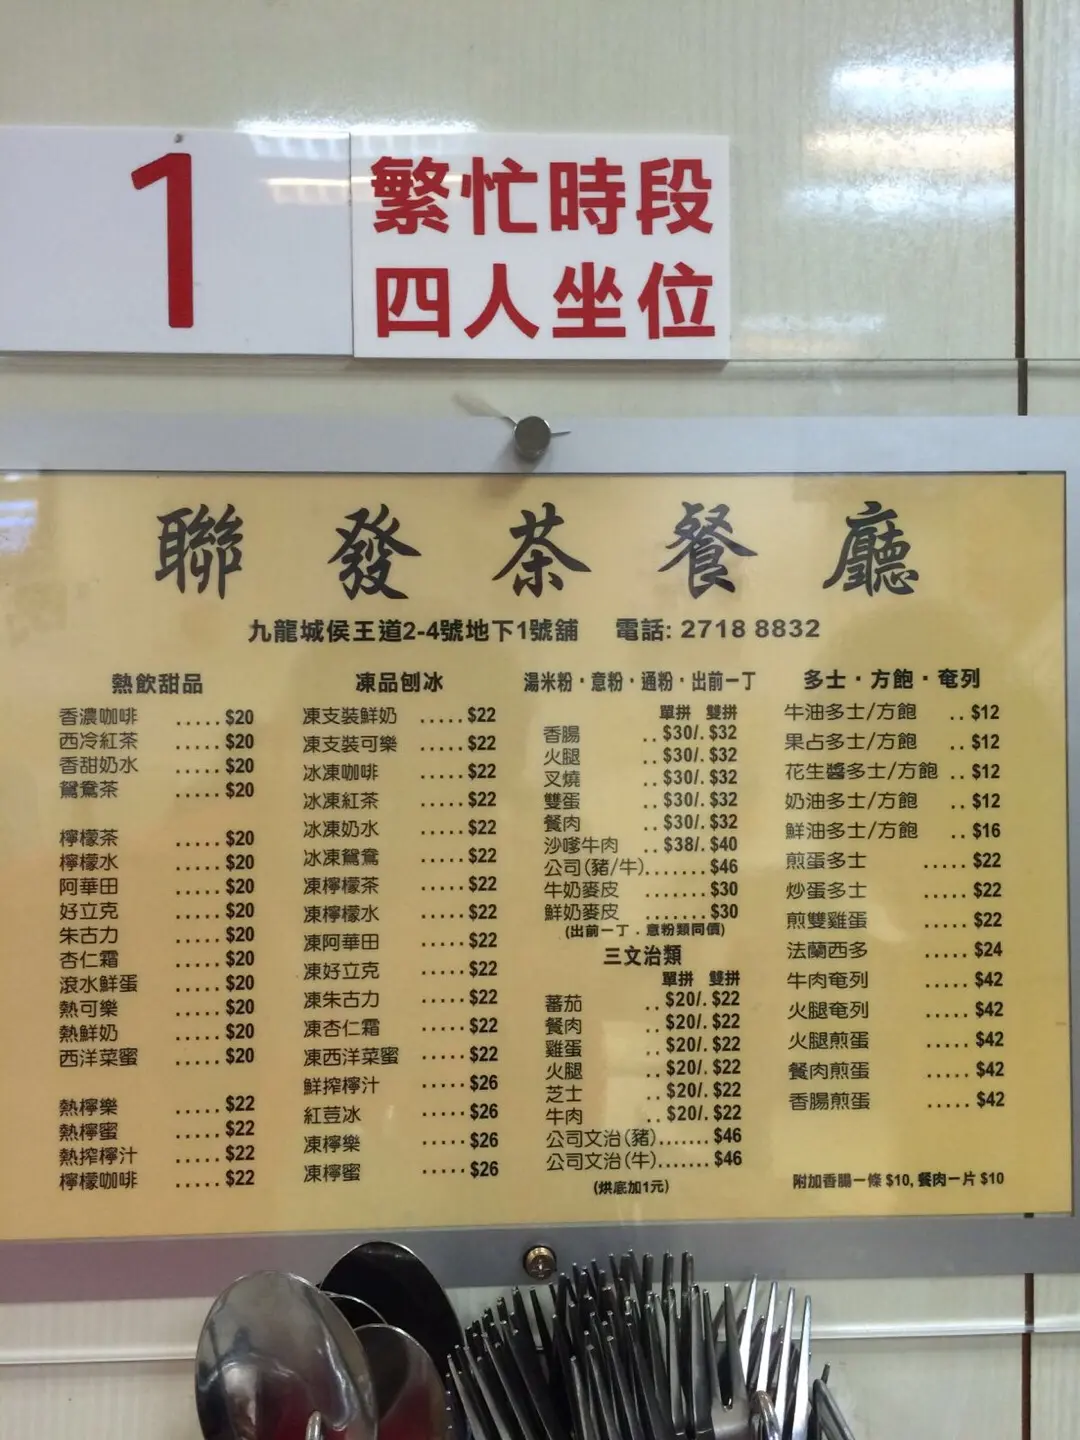 1
繁忙時段
四人坐位
聯發茶餐廳
九龍城侯王道2-4號地下1號舖 電話: 2718 8832
熱飲甜品
香濃咖啡 .....$20
西冷紅茶 .....$20
香甜奶水 .....$20
鴛鴦茶 .....$20
檸檬茶 .....$20
檸檬水 .....$20
阿華田 .....$20
好立克 .....$20
朱古力 .....$20
杏仁霜 .....$20
滾水鮮蛋 .....$20
熱可樂 .....$20
熱鮮奶 .....$20
西洋菜蜜 .....$20
熱檸樂 .....$22
熱檸蜜 .....$22
熱搾檸汁 .....$22
檸檬咖啡 .....$22
凍品刨冰
凍支裝鮮奶 .....$22
凍支裝可樂 .....$22
冰凍咖啡 .....$22
冰凍紅茶 .....$22
冰凍奶水 .....$22
冰凍鴛鴦 .....$22
凍檸檬茶 .....$22
凍檸檬水 .....$22
凍阿華田 .....$22
凍好立克 .....$22
凍朱古力 .....$22
凍杏仁霜 .....$22
凍西洋菜蜜 .....$22
鮮搾檸汁 .....$26
紅荳冰 .....$26
凍檸樂 .....$26
凍檸蜜 .....$26
湯米粉·意粉·通粉·出前一丁
單拼 雙拼
香腸 ..$30/.$32
火腿 ..$30/.$32
叉燒 ..$30/.$32
雙蛋 ..$30/.$32
餐肉 ..$30/.$32
沙嗲牛肉 ..$38/.$40
公司(豬/牛).......$46
牛奶麥皮 .......$30
鮮奶麥皮 .......$30
(出前一丁．意粉類同價)
三文治類
單拼 雙拼
蕃茄 ..$20/.$22
餐肉 ..$20/.$22
雞蛋 ..$20/.$22
火腿 ..$20/.$22
芝士 ..$20/.$22
牛肉 ..$20/.$22
公司文治(豬).......$46
公司文治(牛).......$46
(烘底加1元)
多士·方飽·奄列
牛油多士/方飽 ..$12
果占多士/方飽 ..$12
花生醬多士/方飽 ..$12
奶油多士/方飽 ..$12
鮮油多士/方飽 ..$16
煎蛋多士 .....$22
炒蛋多士 .....$22
煎雙雞蛋 .....$22
法蘭西多 .....$24
牛肉奄列 .....$42
火腿奄列 .....$42
火腿煎蛋 .....$42
餐肉煎蛋 .....$42
香腸煎蛋 .....$42
附加香腸一條 $10, 餐肉一片 $10